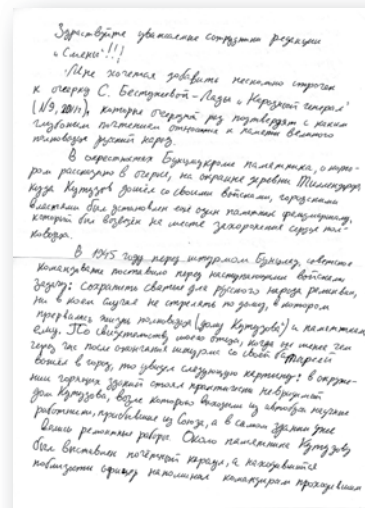 Здравствуйте уважаемые сотрудники редакции
"Смены"!!!
Мне хочется добавить несколько строчек
к очерку С. Бестужевой-Лады "Народный генерал"
(№9, 2011), которые очередной раз подтвердят с каким
глубоким почтением относится к памяти великого
полководца русский народ.
В окрестностях Бунцлау кроме памятника, о кото-
ром рассказано в очерке, на окраине деревни Тиллендорф
куда Кутузов дошёл со своими войсками, городскими
властями был установлен ещё один памятник фельдмаршалу,
который был возведён на месте захоронения сердца пол-
ководца.
В 1945 году перед штурмом Бунцлау, советское
командование поставило перед наступающими войсками
задачу: сохранить святые для русского народа реликвии,
ни в коем случае не стрелять по дому, в котором
прервалась жизнь полководца (дому Кутузова) и памятникам
ему. По свидетельству моего отца, когда он менее чем
через час после окончания штурма со своей батареей
вошёл в город, то увидел следующую картину: в окруже-
нии горящих зданий стоял практически невредимый
дом Кутузова, возле которого выходили из автобуса научные
работники, прибывшие из Союза, а в самом здании уже
велись ремонтные работы. Около памятника Кутузову
был выставлен почётный караул, а находившийся
поблизости офицер напоминал командирам проходившим